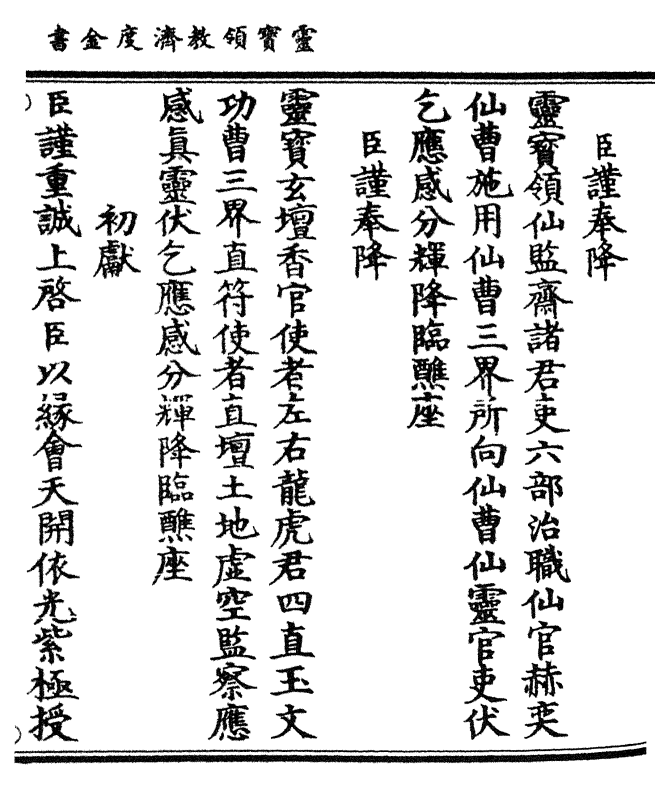 靈寳領教濟度金書
臣謹奉降
靈寳領仙監齋諸君吏六部治職仙官赫奕
仙曹施用仙曹三界所向仙曹仙靈官吏伏
乞應感分輝降臨醮座
臣謹奉降
靈寳玄壇香官使者左右龍虎君四直玉文
功曹三界直符使者直壇土地虛空監察應
感眞靈伏乞應感分輝降臨醮座
初獻
臣謹重誠上啓臣以緣會天開依光紫極授